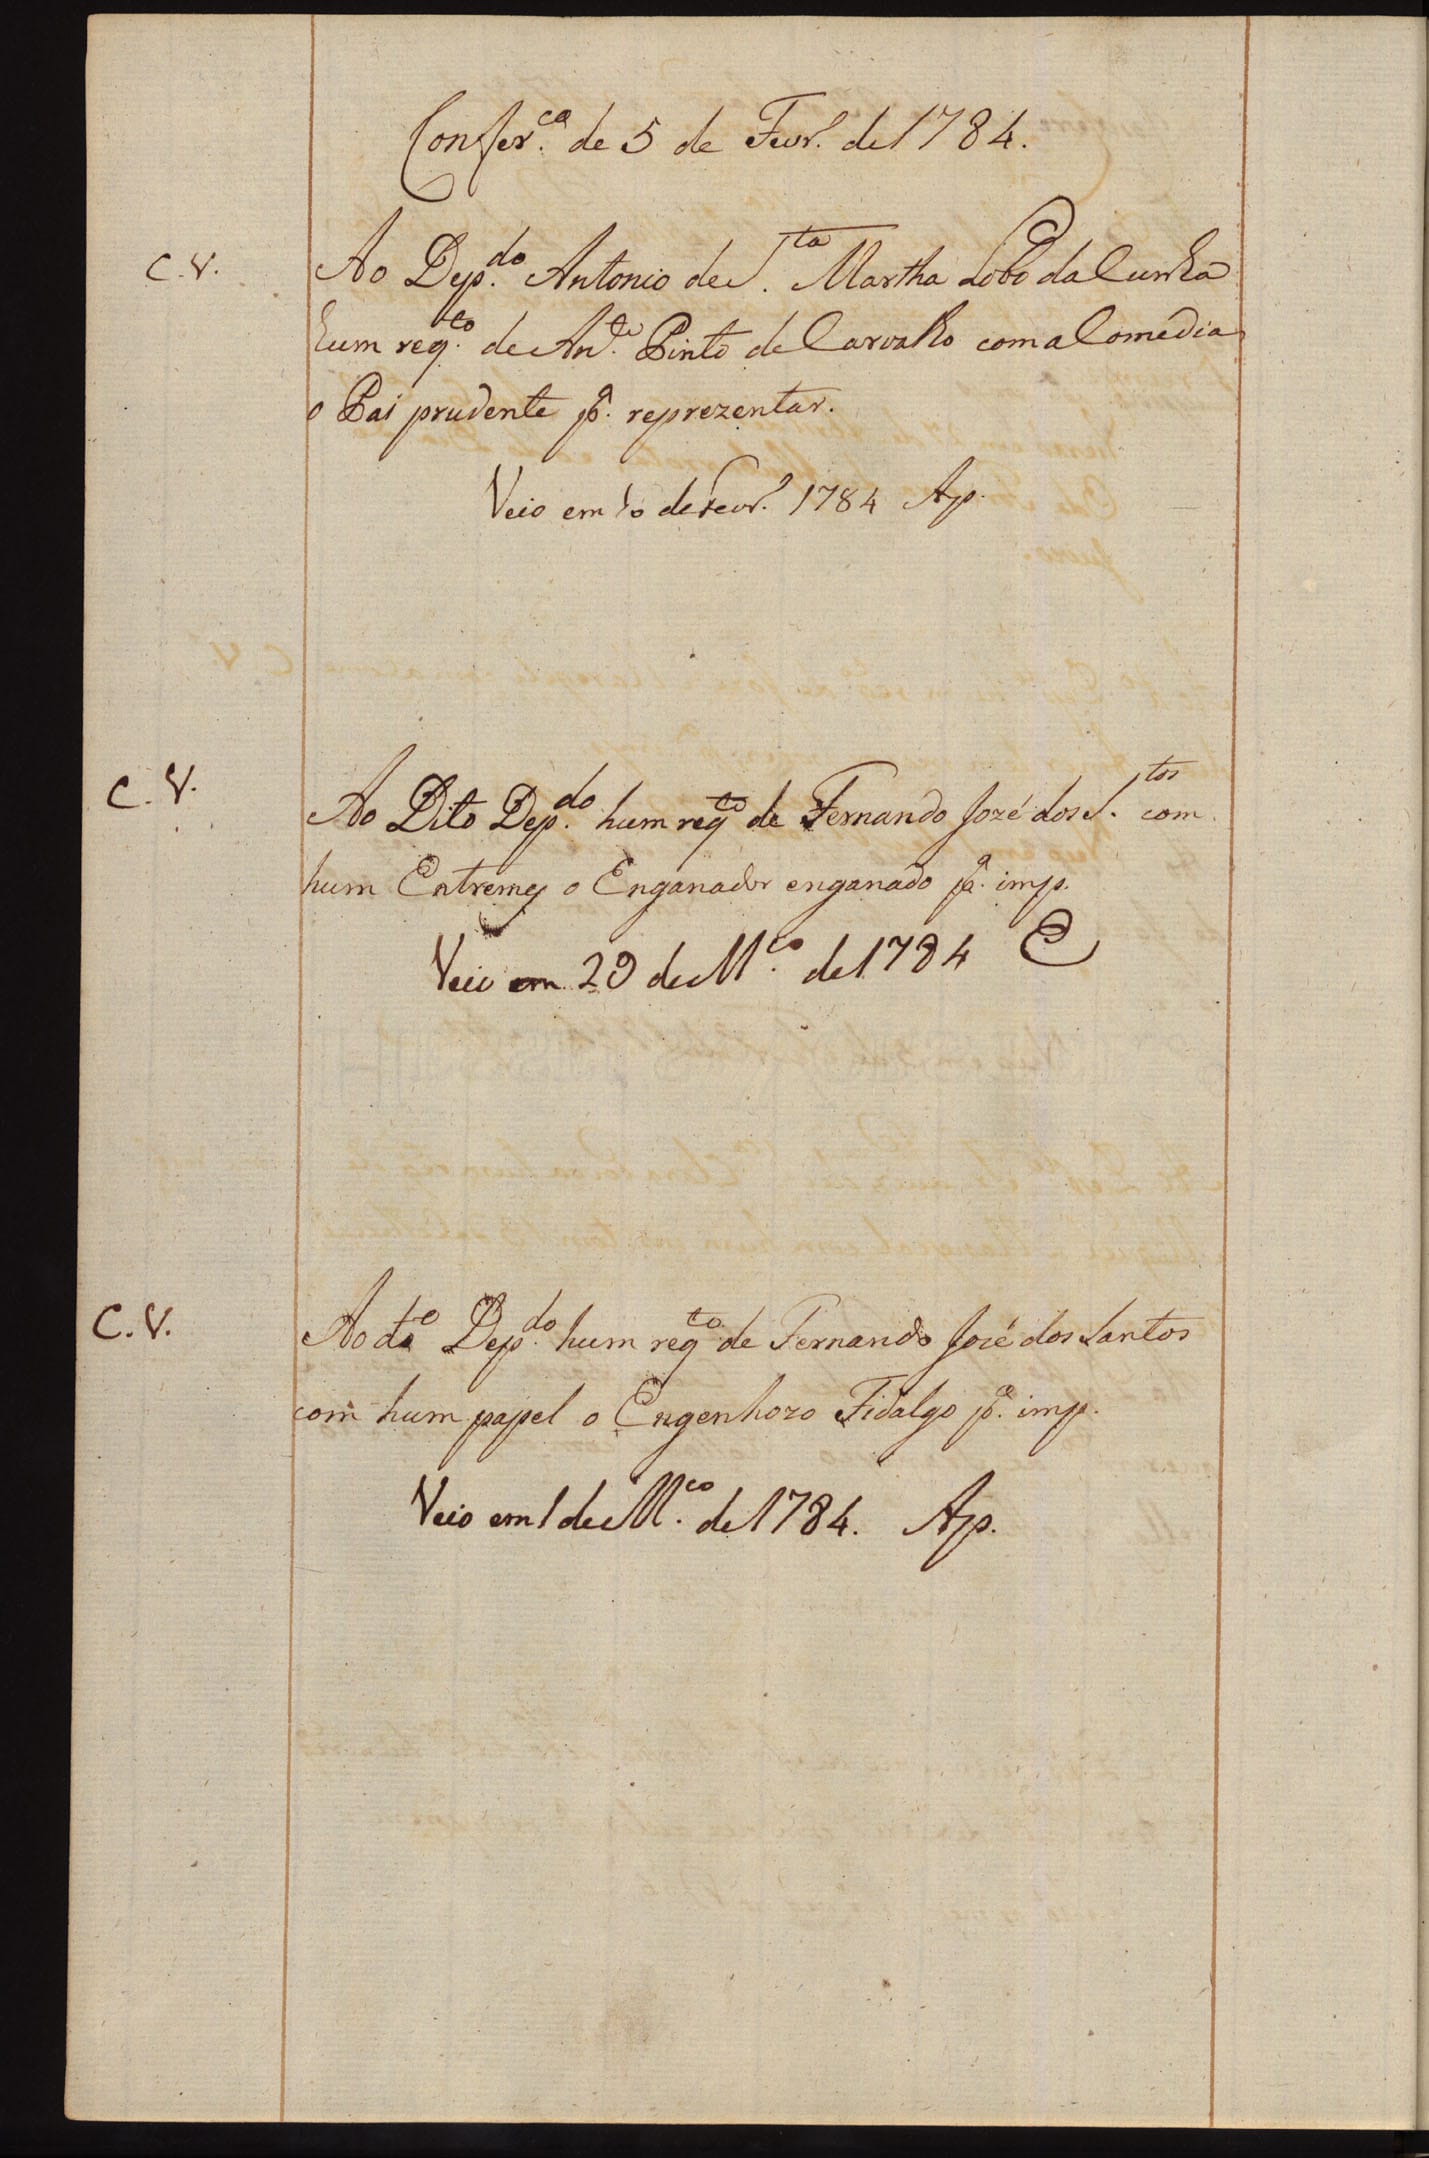 Confer.ca de 5 de Fevr.o de 1784.
C.V.
Ao Dep.do Antonio de S.ta Martha Lobo da Cunha
hum req.to de An.to Pinto de Carvalho com a Comedia
o Pai prudente p.a reprezentar.
Veio em 10 de Fevr.o 1784 Ap.
C.V.
Ao Dito Dep.do hum req.to de Fernando Jozé dos S.tos com
hum Entremes o Enganador enganado p.a imp.
Veio em 29 de M.ço de 1784 E
C.V.
Ao d.to Dep.do hum req.to de Fernando José dos Santos
com hum papel o Engenhozo Fidalgo p.a imp.
Veio em 1 de M.ço de 1784. Ap.